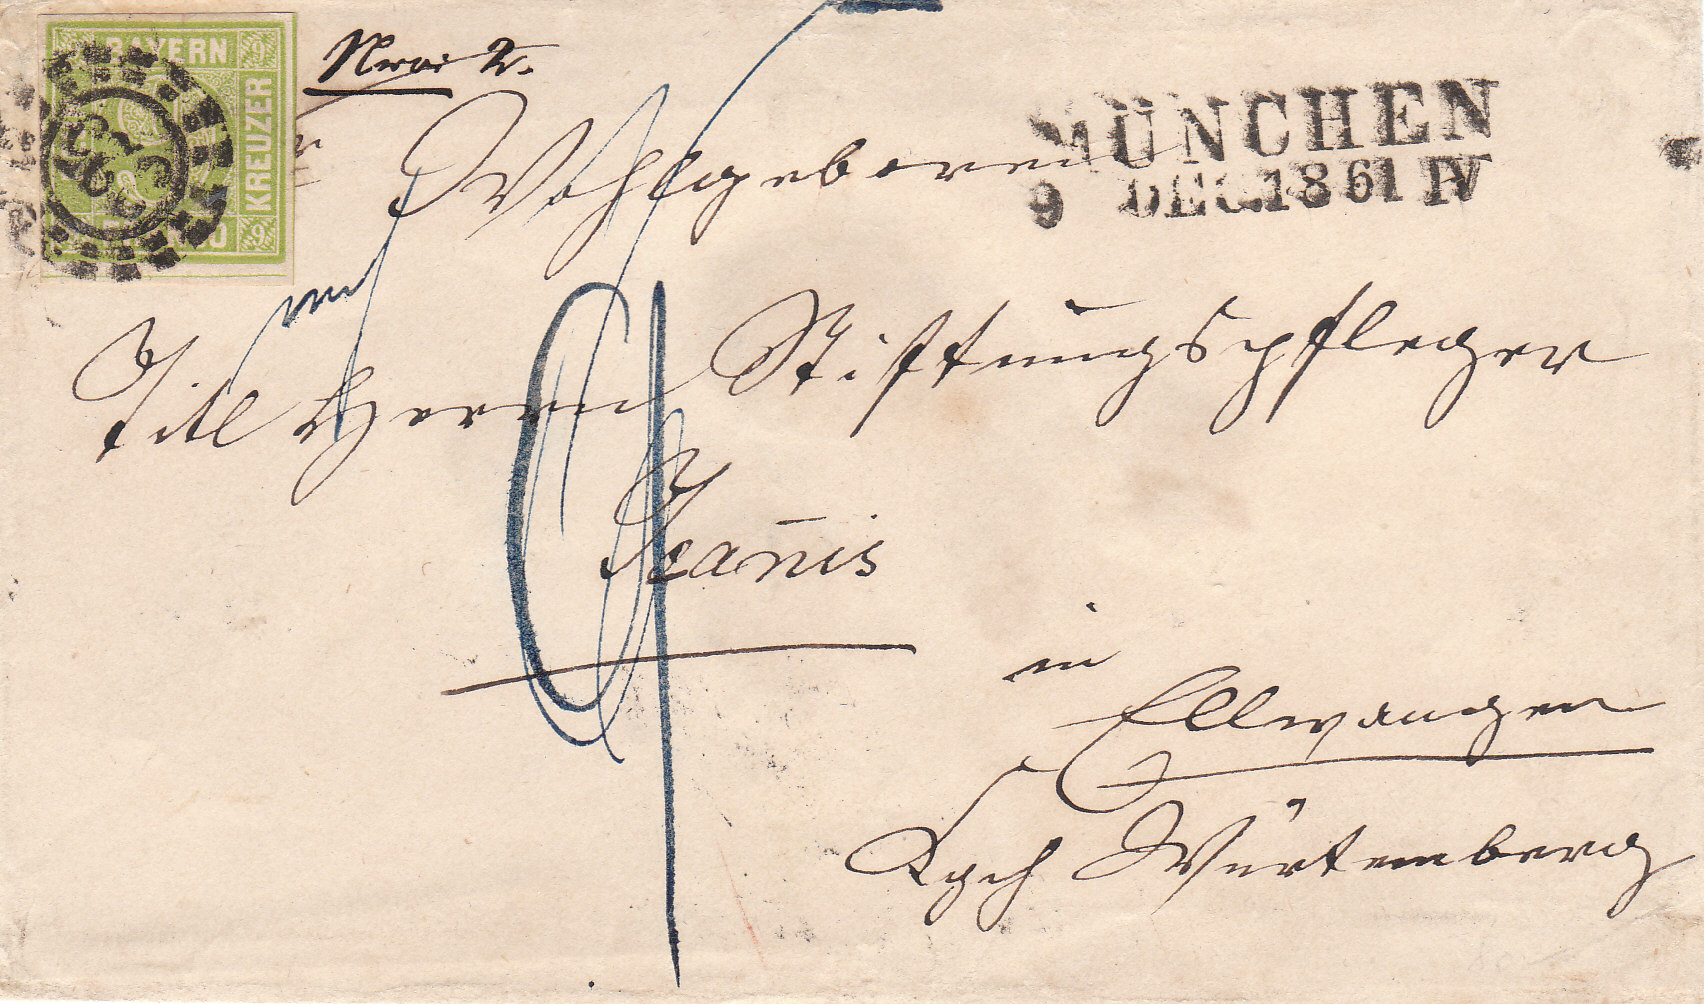 BAYERN
KREUZER
9
9
MÜNCHEN
9 DEC. 1861 IV
Wohlgeboren
Titl Herrn Stiftungspfleger
in
Ellwangen
Kgch Würtemberg